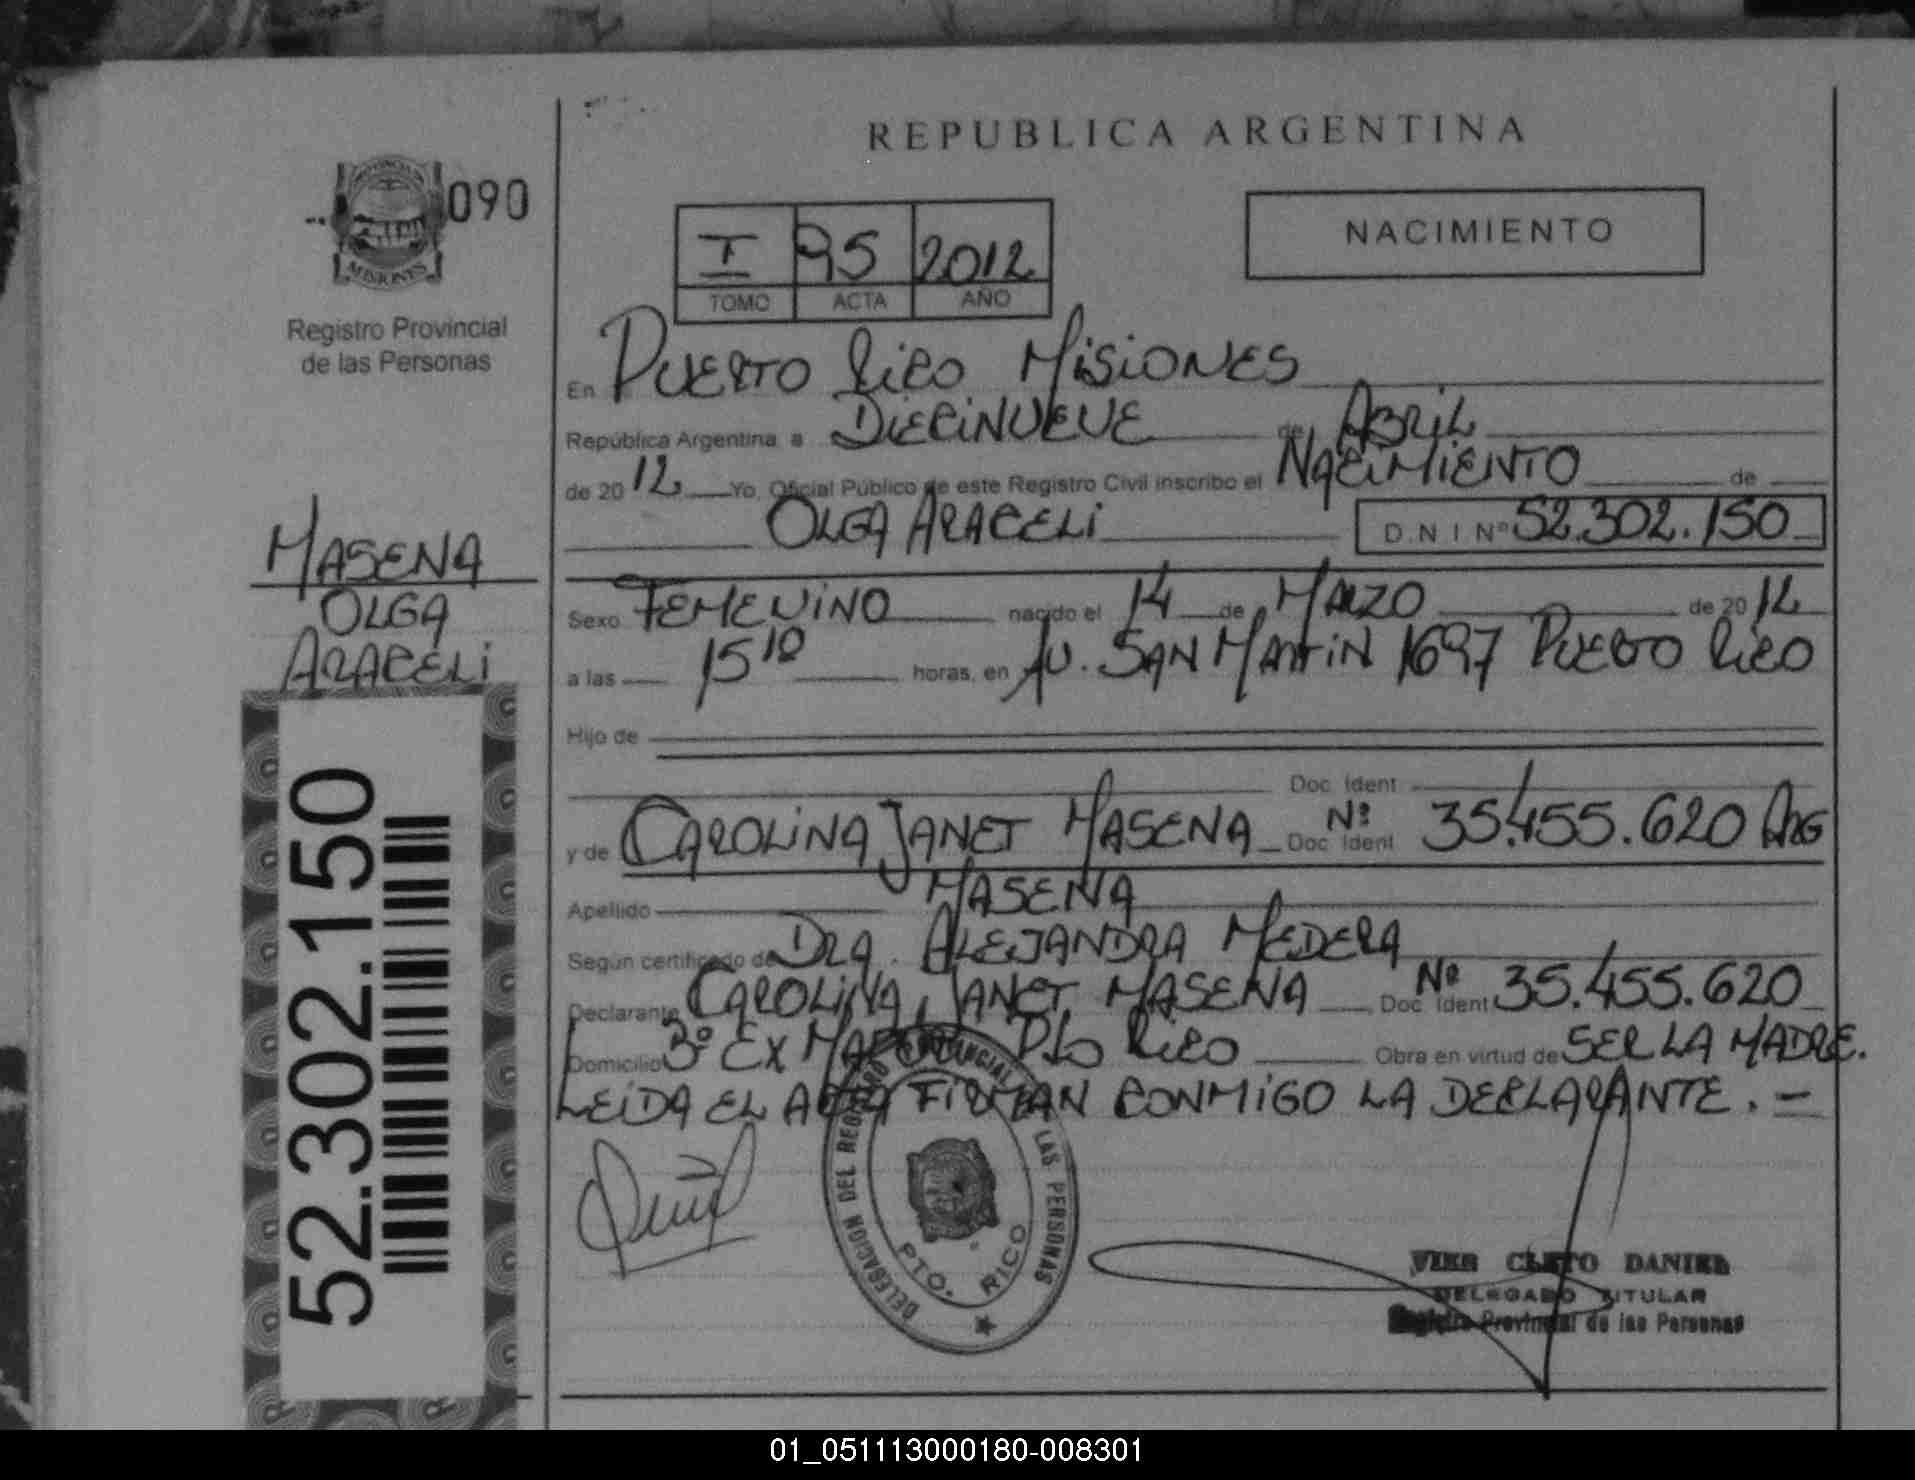 REPUBLICA ARGENTINA
PROVINCIA DE
MISIONES
090
Registro Provincial
de las Personas
I 95 2012
TOMO ACTA AÑO
NACIMIENTO
En PUERTO RICO MISIONES
República Argentina a DIECINUEVE de ABRIL
de 2012 Yo, Oficial Público de este Registro Civil inscribo el NACIMIENTO de
OLGA ARACELI D.N I Nº 52.302.150
MASENA
OLGA
ARACELI
Sexo FEMENINO nacido el 14 de MARZO de 2012
a las 15 10 horas, en AV. SAN MARTIN 1697 PUERTO RICO
Hijo de
Doc. Ident
y de CAROLINA JANET MASENA Nº Doc. Ident 35.455.620 ARG
Apellido MASENA
Según certificado de DRA. ALEJANDRA MEDERA
Declarante CAROLINA JANET MASENA Nº Doc. Ident 35.455.620
Domicilio 3º EX Pto RICO Obra en virtud de SER LA MADRE.
LEIDA EL ACTA FIRMAN CONMIGO LA DECLARANTE. -
52.302.150
DELEGACION DEL REGISTRO PROVINCIAL DE LAS PERSONAS
PTO. RICO
CLETO DANIEL
DELEGADO TITULAR
Registro Provincial de las Personas
01_051113000180-008301